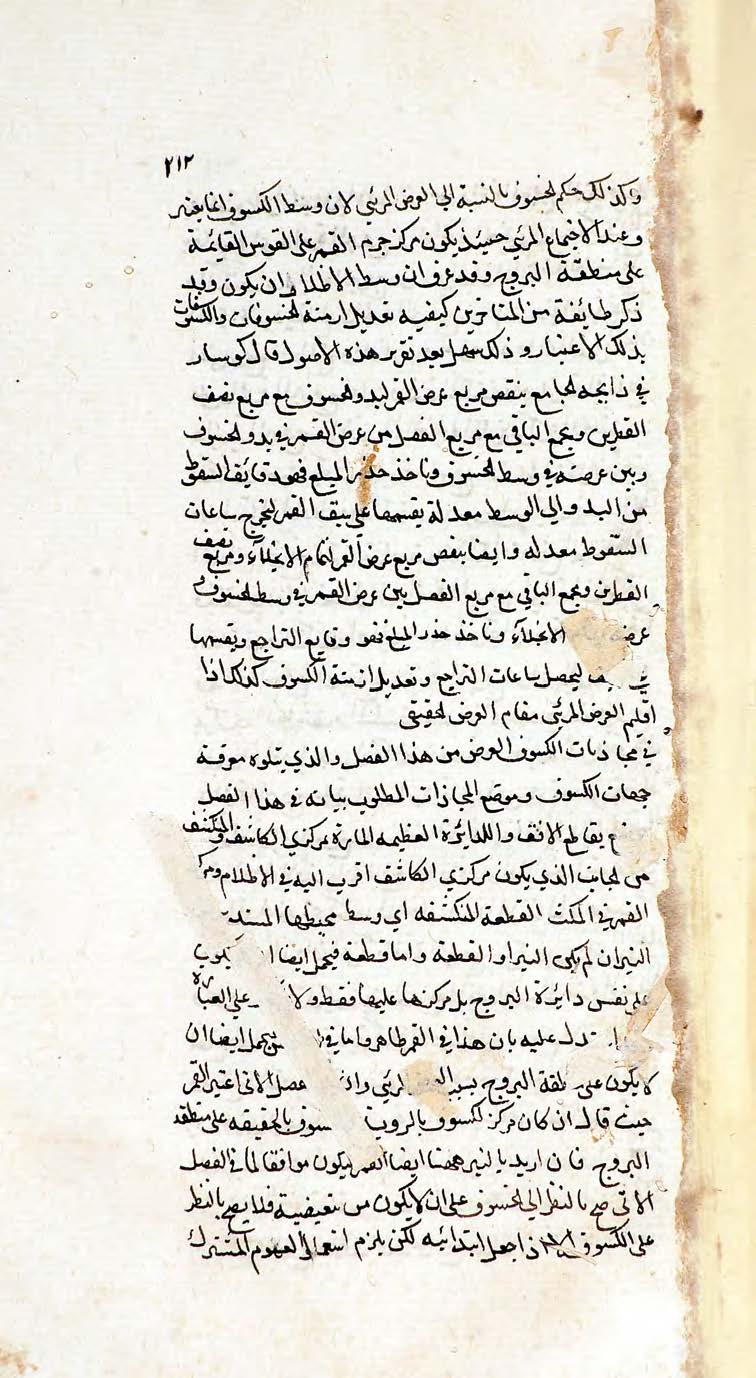 ٢١٢
وكذلك حكم الخسوف بالنسبة الى العرض المرئي لان وسط الكسوف انما يعتبر
وعند الاجتماع المرئي حينئذ يكون مركز جرم القمر على القوس القائمة
على منطقة البروج وقد عرف ان وسط الاظلام ان يكون وقد
ذكر طائفة من المتاخرين كيفية تعديل ازمنة الخسوفات والكسوفات
بذلك الاعتبار وذلك سهل بعد تقرير هذه الاصول قال كوسيار
في زايجه الجامع ينقص مربع عرض القمر لبدو الخسوف مع مربع نصف
القطرين ويجمع الباقي مع مربع الفصل من عرض القمر في بدو الخسوف
وبين عرضه في وسط الخسوف وناخذ جذر المبلغ فهو دقايق السقوط
من البدو الى الوسط معدلة يقسمها على سبق القمر ليخرج ساعات
السقوط معدله وايضا ينقص مربع عرض القمر لتمام الانجلاء ومربع نصف
القطرين ويجمع الباقي مع مربع الفصل بين عرض القمر في وسط الخسوف و
عرضه الانجلاء وناخذ جذر المبلغ فهو دقايق التراجع ويقسمها
ليحصل ساعات التراجع وتعديل ازمنة الكسوف كذلك اذا
اقيم العرض المرئي مقام العرض الحقيقي
في محاذيات الكسوف الغرض من هذا الفصل والذي يتلوه معرفة
جهات الكسوف وموضع المحاذات المطلوب بيانه في هذا الفصل
يقاطع الافق والدائرة العظيمة المارة بمركزي الكاشف والمنكشف
من الجانب الذي يكون مركزي الكاشف اقرب اليه في الاظلام ومركز
القمر في المكث القطعة المنكشفه اي وسط محيطها المستد
النيران لم يكن النير او القطعة واما قطعة فيحمل ايضا يكون
على نفس دائرة البروج بل مركزها عليها فقط ولا على العبارة
تدل عليه بان هذا في القمر ظاهر واما في يحمل ايضا ان
لا يكون على منطقة البروج بسبب المرئي الفصل الاتي اعتبر القمر
حيث قال ان كان مركز الكسوف بالروية الخسوف بالحقيقه على منطقه
البروج فان اريد بالنير ههنا ايضا القمر ليكون موافقا لما في الفصل
الاتي صح بالنظر الى الخسوف على ان لا يكون من تبعيضية فلا يصح بالنظر
على الكسوف الا اذا جعل ابتدائيه لكن يلزم استعمال العموم المشترك